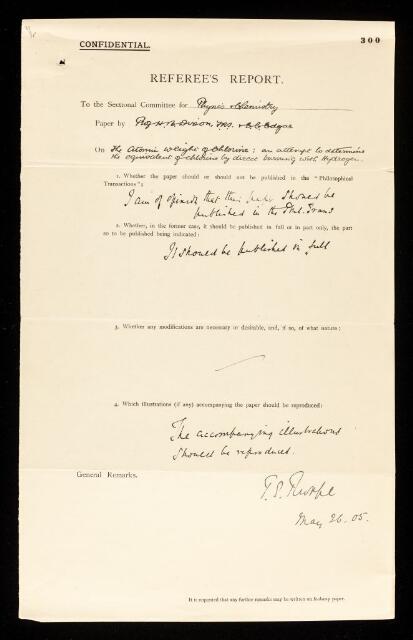 CONFIDENTIAL.
300
REFEREE'S REPORT.
To the Sectional Committee for Physics & Chemistry
Paper by Prof H. B. Dixon, F.R.S. & E. C. Edgar
On The Atomic Weight of Chlorine: an attempt to determine
the equivalent of chlorine by direct burning with Hydrogen.
1. Whether the paper should or should not be published in the "Philosophical
Transactions":
I am of opinion that this paper should be
published in the Phil. Trans
2. Whether, in the former case, it should be published in full or in part only, the part
so to be published being indicated:
It should be published in full
3. Whether any modifications are necessary or desirable, and, if so, of what nature:
4. Which illustrations (if any) accompanying the paper should be reproduced:
The accompanying illustrations
should be reproduced.
General Remarks.
T. E. Thorpe
May 26. 05.
It is requested that any further remarks may be written on foolscap paper.